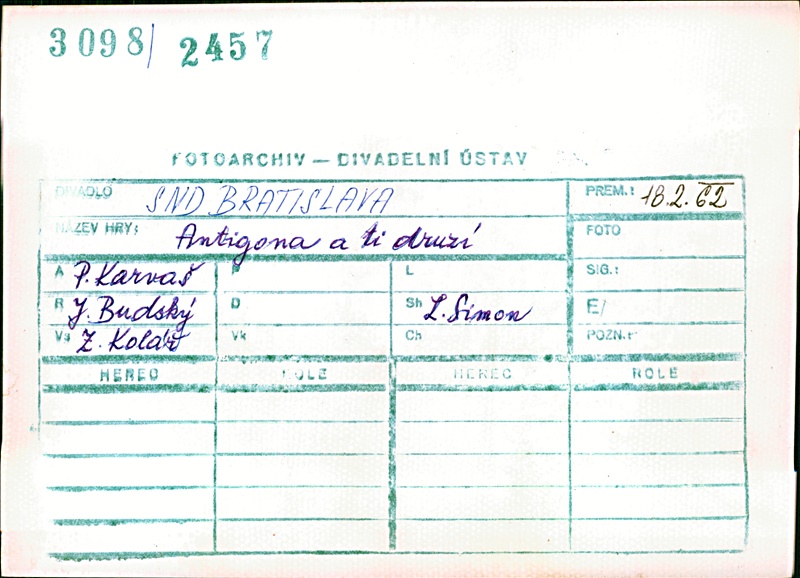 3098/ 2457
FOTOARCHIV — DIVADELNÍ ÚSTAV
DIVADLO SND BRATISLAVA PREM.: 18.2.62
NÁZEV HRY: Antigona a ti druzí FOTO
A P. Karvaš P L SIG.:
R J. Budský D Sh L. Šimon E/
Vs Z. Kolář Vk Ch POZN.:
HEREC ROLE HEREC ROLE